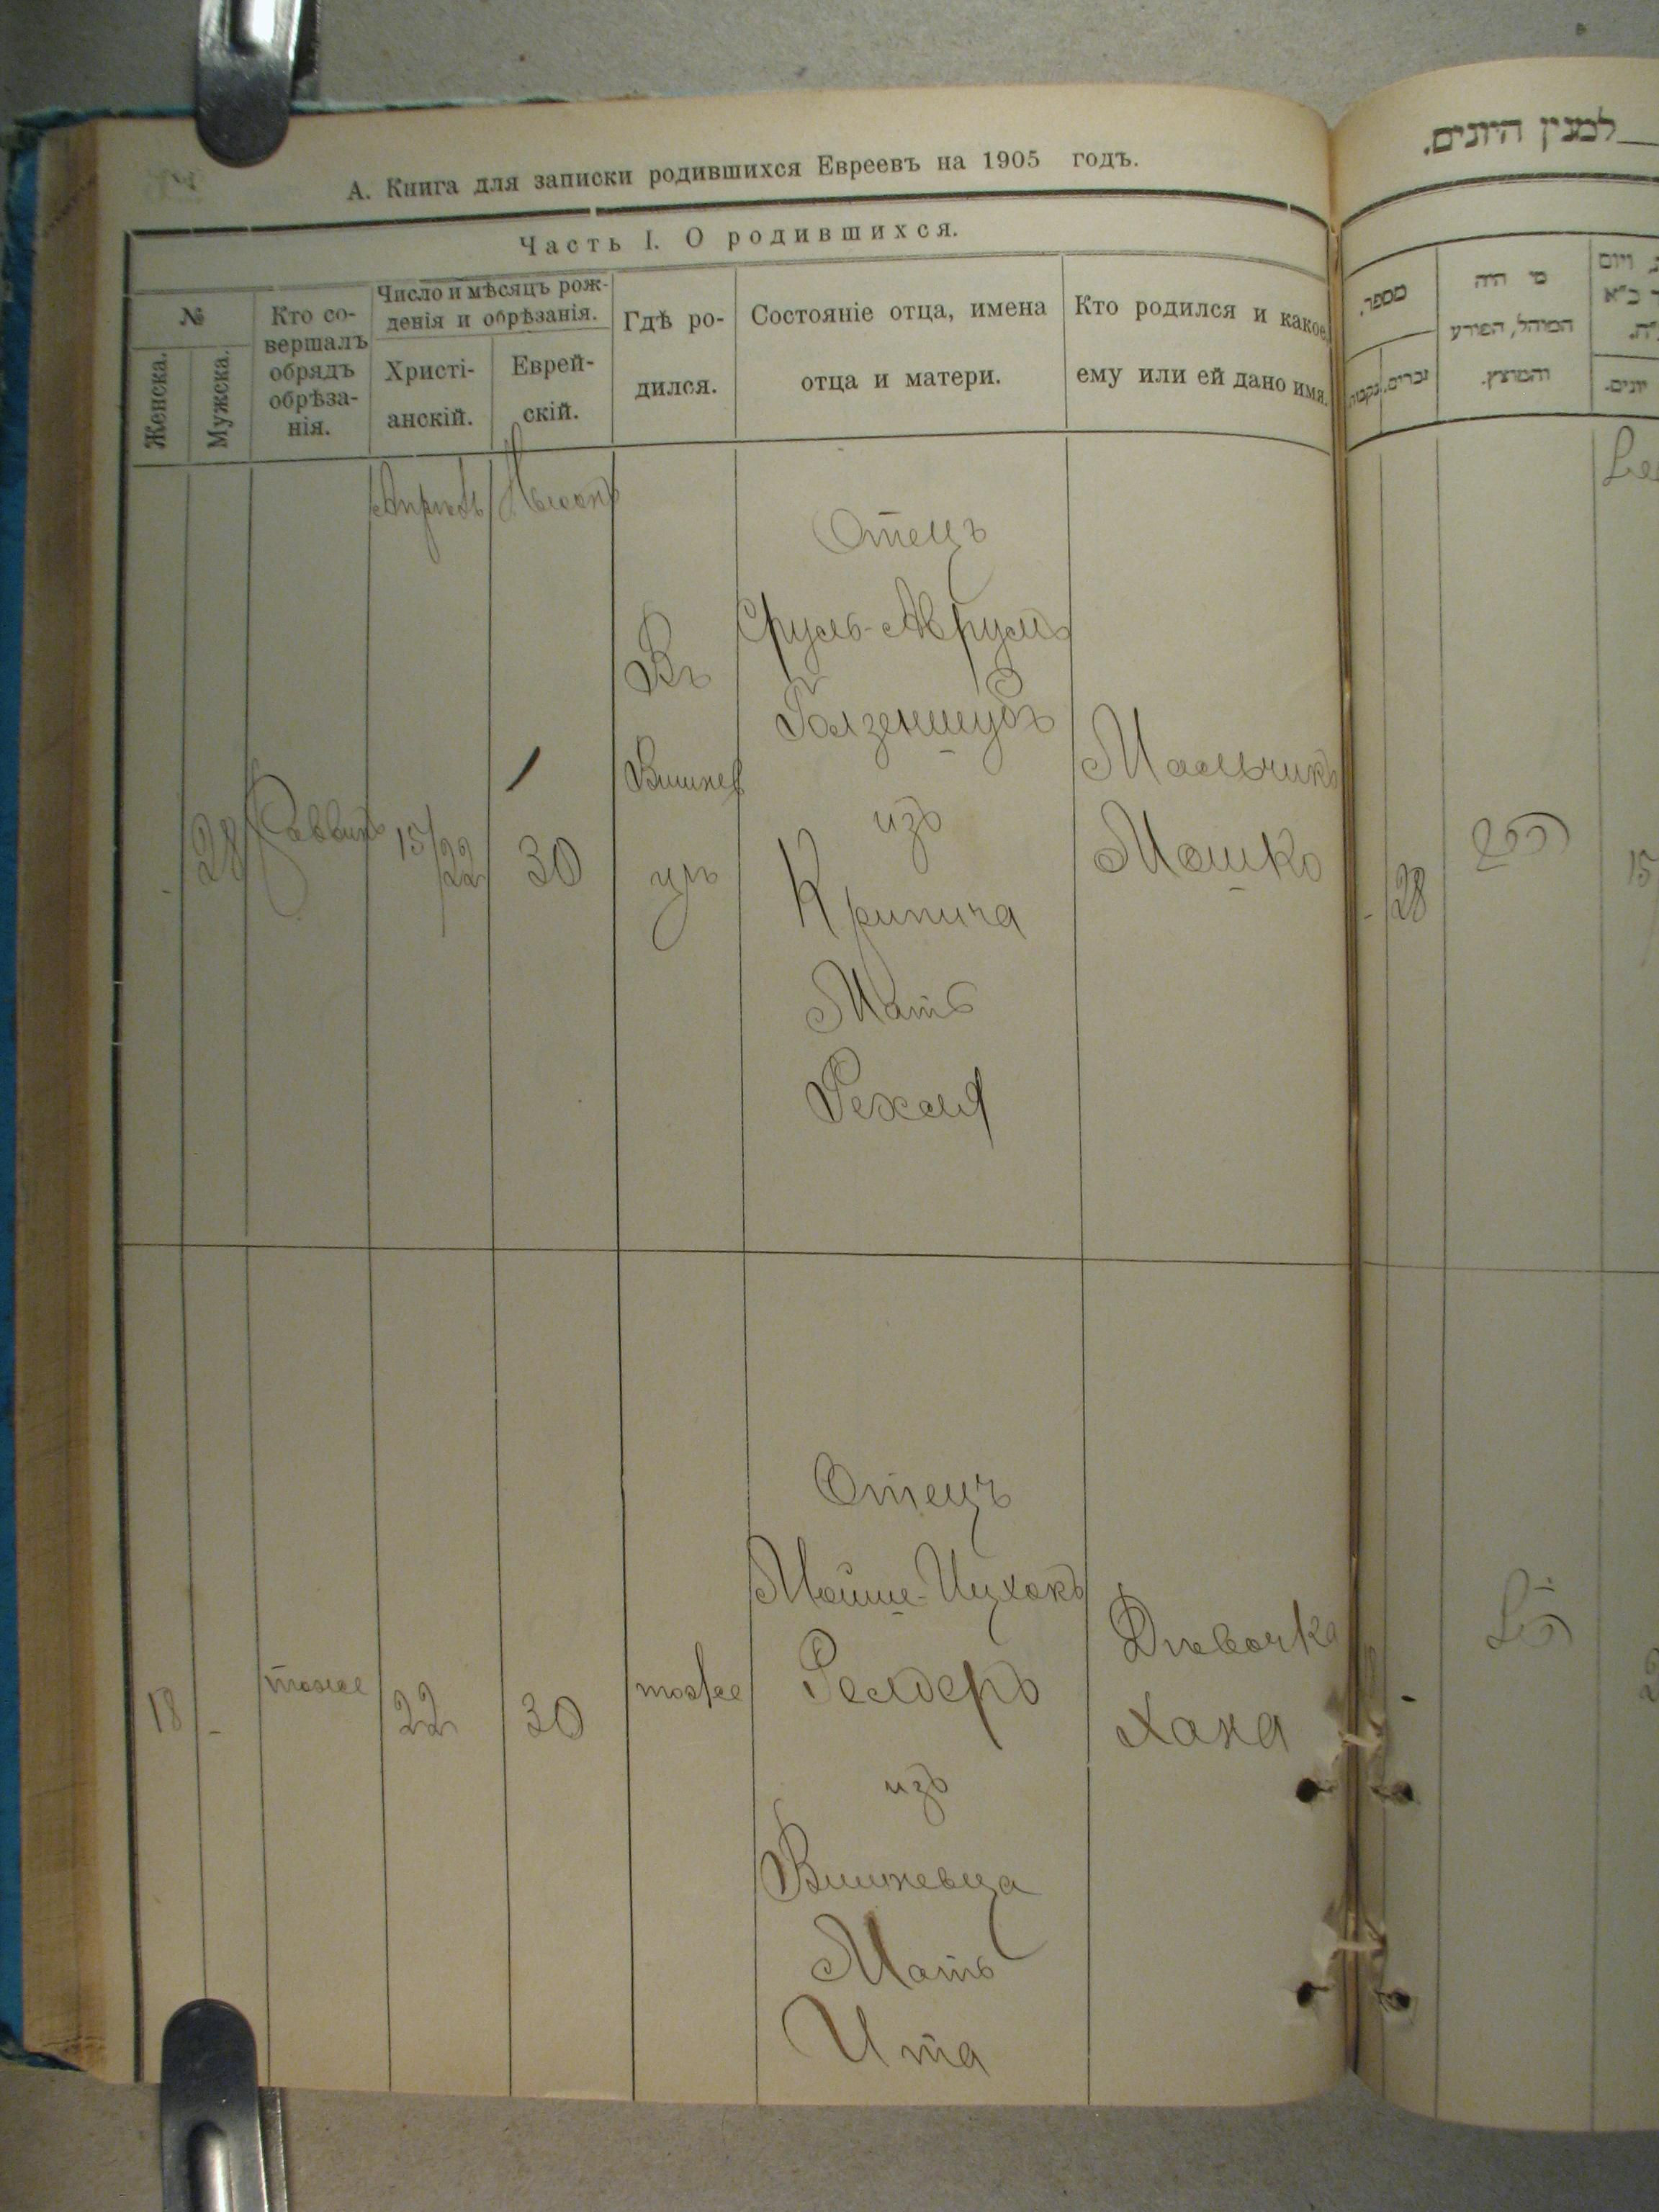 А. Книга для записки родившихся Евреевъ на 1905 годъ.
Часть I. О родившихся.
№
Женска.
Мужска.
Кто со-
вершалъ
обрядъ
обрѣза-
нія.
Число и мѣсяцъ рож-
денія и обрѣзанія.
Христі-
анскій.
Еврей-
скій.
Гдѣ ро-
дился.
Состояніе отца, имена
отца и матери.
Кто родился и какое
ему или ей дано имя.
Апрѣль
28
Раввинъ
15/22
30
Въ
Вишнев
цѣ
Отецъ
Сруль-Аврумъ
изъ
Мать
Мальчикъ
Мошко
18
-
тоже
22
30
тоже
Отецъ
Мойше-Ицхокъ
Релдеръ
изъ
Вишневца
Мать
Ита
Дѣвочка
Хана
למנין היונים.
מספר.
נקבות.
זכרים.
מי היה
המוהל, הפורע
והמוצץ.
יונים.
28
15